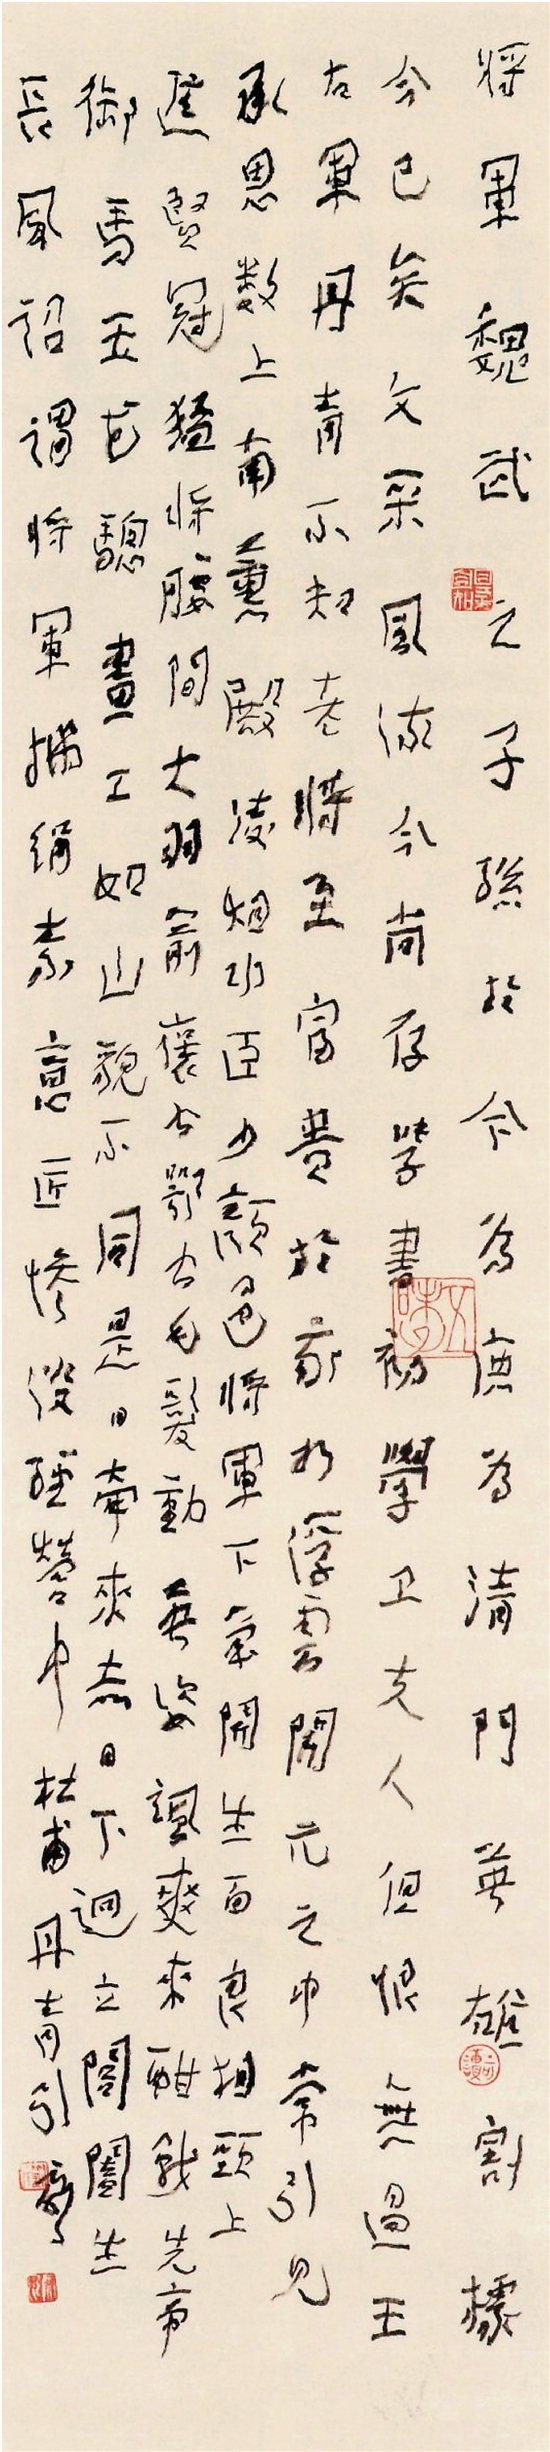 將軍魏武之子孫於今為庶為清門英雄割據
今已矣文采風流今尚存學書初學卫夫人但恨無過王
右軍丹青不知老將至富貴於我如浮雲開元之中常引見
承恩數上南薰殿凌烟功臣少顏色將軍下筆開生面良相頭上
進賢冠猛將腰間大羽箭褒公鄂公毛髮動英姿颯爽來酣戰先帝
御馬玉花驄畫工如山貌不同是日牽來赤日下迥立閶闔生
長風詔謂將軍拂絹素意匠慘淡經營中杜甫丹青引